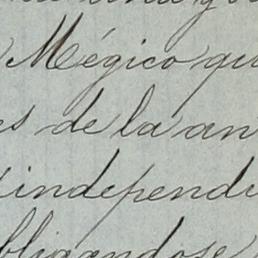 Mégico qu
es de la an
independi
bligandose